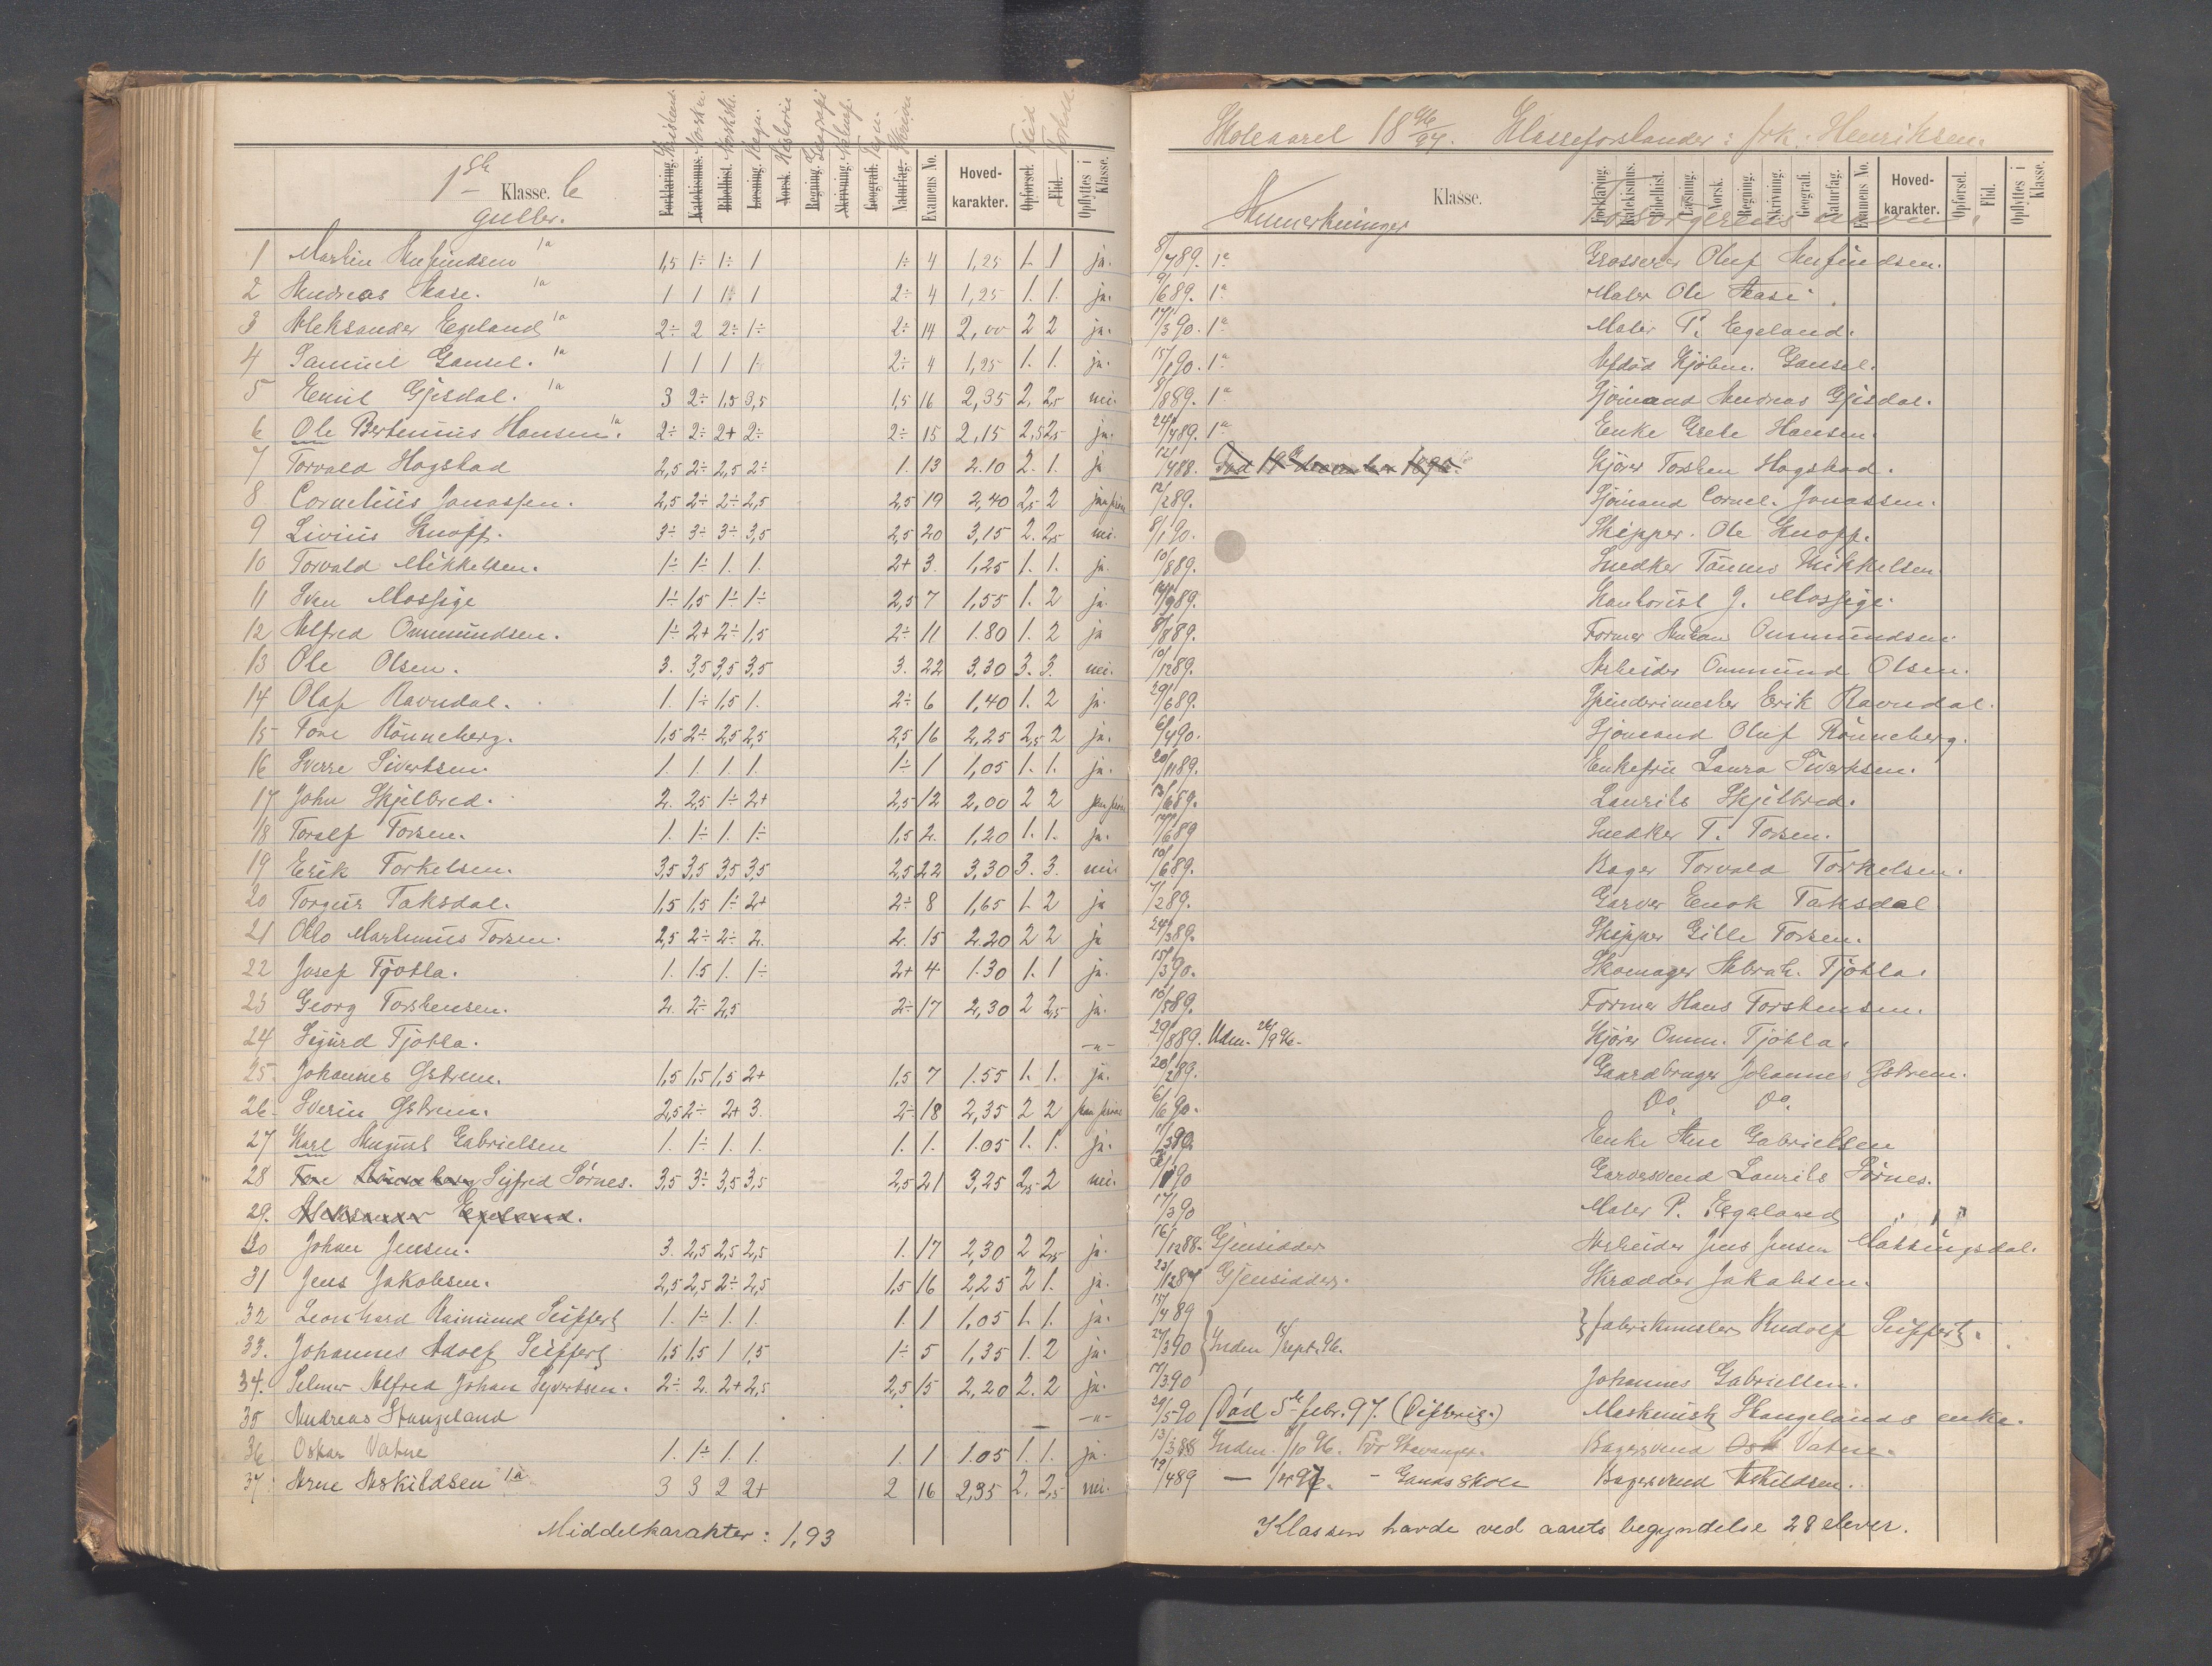 Skoleaaret 18 96/97. Klasseforstander: frk. Henriksen.
1ste Klasse. b
gutter.
Forklaring. Katekismus. Bibelhist. Læsning. Norsk. Regning. Skrivning. Geografi. Naturfag. Examens No. Hovedkarakter. Opførsel. Flid. Opflyttes i Klasse.
Anmerkninger Klasse. Forsørgerens navn.
Forklaring. Katekismus. Bibelhist. Læsning. Norsk. Regning. Skrivning. Geografi. Naturfag. Examens No. Hovedkarakter. Opførsel. Flid. Opflyttes i Klasse.
1 Martin Anfindsen 1a 1,5 1÷ 1÷ 1 1÷ 4 1,25 1 1 ja. 8/7 89. 1a Grosserer Oluf Anfindsen.
2 Andreas Aase. 1a 1 1 1÷ 1 2÷ 4 1,25 1. 1. ja. 9/6 89. 1a Maler Ole Aase
3 Aleksander Egeland 1a 2÷ 2 2÷ 1÷ 2÷ 14 2,00 2 2 ja. 17/3 90. 1a Maler P. Egeland.
4 Samuel Gausel. 1a 1 1 1 1÷ 2÷ 4 1,25 1. 1. ja. 15/1 90. 1a Afdød Kjøbm. Gausel.
5 Emil Gjesdal. 1a 3 2÷ 1,5 3,5 1,5 16 2,35 2. 2,5 nei. 8/8 89. 1a Sjømand Andreas Gjesdal.
6 Ole Bertinius Hansen. 1a 2÷ 2÷ 2+ 2÷ 2÷ 15 2,15 2,5 2,5 ja. 24/4 89. 1a Enke Grete Hansen.
7 Torvald Hogstad 2,5 2÷ 2,5 2÷ 1. 13 2.10 2. 1. ja 12/4 88. Død 19de november 1896. Kjører Torsten Hogstad.
8 Cornelius Jonassen. 2,5 2÷ 2÷ 2,5 2,5 19 2,40 2,5 2 12/2 89. Sjømand Cornel. Jonassen.
9 Livius Knoff. 3÷ 3÷ 3÷ 3,5 2,5 20 3,15 2. 2,5 nei. 8/1 90. Skipper. Ole Knoff.
10 Torvald Mikkelsen. 1÷ 1÷ 1. 1. 2+ 3. 1,25 1. 1. ja. 10/8 89. Snedker Tønnes Mikkelsen.
11 Sven Mossige 1÷ 1,5 1÷ 1÷ 2,5 7 1,55 1. 2 ja. /9 89. Kontorist J. Mossige.
12 Alfred Ommundsen. 1÷ 2+ 2÷ 1,5 2÷ 11 1.80 1. 2 ja 8/8 89. Former Anton Ommundsen.
13 Ole Olsen. 3. 3,5 3,5 3,5 3. 22 3,30 3. 3. nei. 10/12 89. Arbeider Ommund Olsen.
14 Olaf Ravndal. 1. 1÷ 1,5 1. 2÷ 6 1,40 1. 2 ja. 29/6 89. Spinderimester Erik Ravndal.
15 Tore Rönneberg. 1,5 2÷ 2,5 2,5 2,5 16 2,25 2,5 2 ja. 6/4 90. Sjömand Oluf Rönneberg.
16 Sverre Sivertsen. 1. 1. 1. 1. 1÷ 1 1,05 1. 1. ja. 20/11 89. Enkefru Laura Sivertsen.
17 John Skjelbred. 2. 2,5 1÷ 2+ 2,5 12 2,00 2 2 13/6 89. Laurits Skjelbred.
18 Toralf Torsen. 1. 1÷ 1. 1÷ 1,5 2. 1,20 1. 1. ja. /6 89 Snedker T. Torsen.
19 Erik Torkelsen. 3,5 3,5 3,5 3,5 2,5 22 3,30 3. 3. nei 10/6 89. Bager Torvald Torkelsen.
20 Torgeir Taksdal. 1,5 1,5 1÷ 2+ 2÷ 8 1,65 1. 2 ja 7/2 89. Garver Enok Taksdal
21 Otto Martinius Torsen. 2,5 2÷ 2÷ 2. 2. 15 2.20 2 2 ja 24/3 89. Skipper Gitle Torsen.
22 Josef Tjøtta. 1. 1.5 1. 1÷ 2+ 4 1.30 1. 1 ja. 15/3 90. Skomager Abrah. Tjøtta.
23 Georg Torstensen. 2. 2÷ 2,5 2÷ 17 2,30 2 2,5 ja. 10/5 89. Former Hans Torstensen.
24 Sigurd Tjøtta. -"- 29/8 89. Udm. 26/9 96. Kjører Omm. Tjøtta.
25. Johannes Østrem. 1,5 1,5 1,5 2+ 1,5 7 1.55 1. 1. ja. 20/2 89. Gaardbruger Johannes Østrem.
26. Sverin Østrem. 2,5 2÷ 2+ 3. 2÷ 18 2,35 2 2 6/6 90. Do. Do.
27 Karl August Gabrielsen 1. 1÷ 1. 1. 1. 1. 1.05 1. 1. ja. /3 90. Enke Ane Gabrielsen
28 Tore Rönneberg Sigfred Sørnes. 3,5 3÷ 3,5 3,5 2,5 21 3,25 2,5 2 nei. 90 Garversvend Laurits Sørnes.
29. Aleksander Egeland. 17/3 90 Maler P. Egeland
30 Johan Jensen. 3. 2,5 2,5 2,5 1. 17 2,30 2 2,5 ja. 16/12 88. Gjensidder Arbeider Jens Jensen Matningsdal.
31 Jens Jakobsen. 2,5 2,5 2÷ 2,5 1,5 16 2,25 2 1. ja. 23/12 87 Gjensidder. Skrædder Jakobsen.
32 Leonhard Raimund Seiffert 1. 1÷ 1. 1. 1. 1 1,05 1. 1. ja. 15/4 89 } fabrikmester Rudolf Seiffert.
33. Johannes Adolf Seiffert 1,5 1,5 1 1,5 1÷ 5 1,35 1. 2 ja. 27/3 90 } Inden /sept. 96.
34. Selmer Alfred Johan Syvertsen. 2÷ 2. 2+ 2,5 2,5 15 2,20 2. 2 ja. 17/3 90 Johannes Gabrielsen.
35 Andreas Stangeland -"- 29/5 90 (Død 5te febr. 97. (Difterit.) Maskinist Stangelands enke.
36 Oskar Vatne 1. 1÷ 1. 1. 1. 1 1.05 1. 1. ja. 13/3 88 Inden. /10 96. Før Stavanger. Bagersvend Osk Vatne.
37 Arne Askildsen 1a 3 3 2 2+ 2 16 2,35 2. 2,5 nei. 19/4 89 — 97. - Gands skole Bagersvend Askildsen.
Middelkarakter: 1,93
Klassen havde ved aarets begyndelse 28 elever.